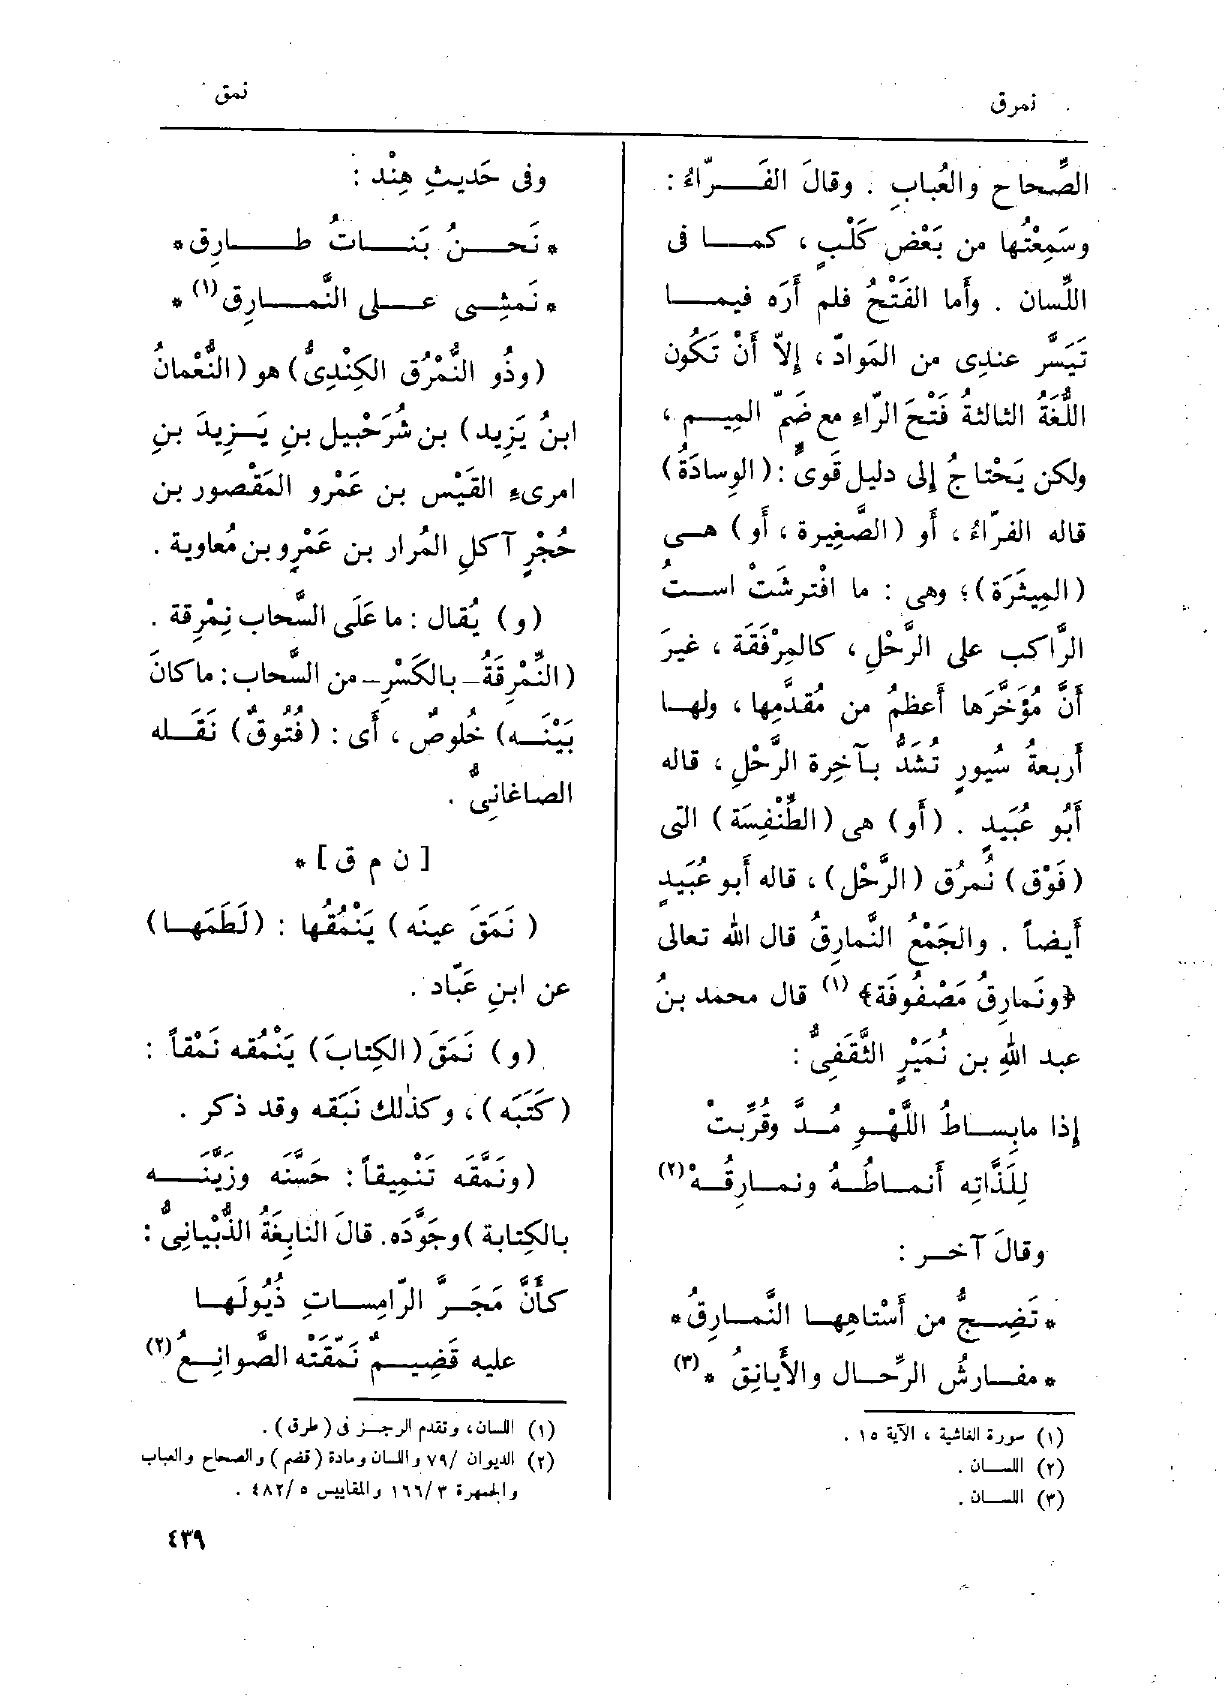 نمرق
نمق
الصِّحاح والعُبابِ . وقالَ الفَــرّاءُ :
وسَمِعْتُها من بَعْض كَلْبٍ ، كمــا فى
اللِّسان . وأما الفَتْحُ فلم أَرَه فيمــا
تَيَسَّر عندِى من المَوادّ ، إِلاّ أَنْ تَكُون
اللُّغَةُ الثالثةُ فَتْحَ الرّاءِ مع ضَمّ المِيــم ،
ولكن يَحْتاجُ إِلى دليل قَوىٍّ : (الوِسادَةُ)
قاله الفَرّاءُ ، أَو (الصَّغِيرة ، أَو) هــى
(المِيثَرَة) ؛ وهى : ما افْترشَتْ اسـتُ
الرَّاكب على الرَّحْلِ ، كالمِرْفَقَة ، غيرَ
أَنَّ مُؤَخَّرَها أَعظمُ من مُقدَّمِها ، ولهـا
أَربعةُ سُيورٍ تُشَدُّ بآخِرة الرَّحْلِ ، قاله
أَبُو عُبَيدٍ . (أَو) هى (الطِّنْفِسَة) التى
(فَوْق) نُمرُق (الرَّحْل) ، قاله أَبو عُبَيدٍ
أَيضاً . والجَمْعُ النَّمارِقُ قال الله تعالى
﴿ونَمارِقُ مَصْفُوفَة﴾ (١) قال محمد بنُ
عبد اللهِ بن نُمَيْرٍ الثَّقَفِىُّ :
إِذا مابِســاطُ اللَّهْــوِ مُــدَّ وقُرِّبتْ
لِلَذَّاتِه أَنمــاطُــهُ ونمــارِقُــهْ (٢)
وقالَ آخــر :
* تَضِــجُّ من أَسْتاهِهــا النَّمــارِقُ *
* مفــارِشُ الرِّحــال والأَيانِقُ * (٣)
(١) سورة الغاشية ، الآية ١٥ .
(٢) اللســان .
(٣) اللســان .
وفى حَديثِ هِنْد :
* نَحــنُ بَنــاتُ طــارِق *
* نَمشِــى عــلى النَّمــارِق (١) *
(وذُو النُّمْرُق الكِنْدِىُّ) هو (النُّعْمانُ
ابنُ يَزِيد) بن شُرَحْبيل بنِ يَــزِيدَ بنِ
امرىءِ القَيْس بن عَمْرو المَقْصور بن
حُجْرٍ آكلِ المُرار بن عَمْرٍو بن مُعاوية .
(و) يُقال : ما عَلَى السَّحاب نِمْرِقة .
(النِّمْرِقَةُ – بالكَسْرِ – من السَّحاب : ما كانَ
بَيْنَــه) خُلوصٌ ، أَى : (فُتُوقٌ) نَقَــله
الصاغانِىُّ .
[ ن م ق ] *
( نَمَقَ عينَه) يَنْمُقُها : (لَطَمَهــا)
عن ابنِ عَبّاد .
(و) نَمَقَ (الكِتابَ) يَنْمُقه نَمْقاً :
(كَتَبَه) ، وكذٰلك نَبَقه وقد ذكر .
(ونَمَّقَه تَنْمِيقاً : حَسَّنه وزَيَّنَــه
بالكِتابة) وجَوَّدَه. قالَ النابِغَةُ الذُّبْيانِىُّ :
كأَنَّ مَجَــرَّ الرّامِســاتِ ذُيُولَهــا
عليه قَضِيــمٌ نَمّقَتْه الصَّوانِــعُ (٢)
(١) اللسان، وتقدم الرجــز فى (طرق) .
(٢) الديوان /٧٩ واللسان ومادة (قضم) والصحاح والعباب
والجمهرة ١٦٦/٣ والمقاييس ٤٨٢/٥ .
٤٣٩